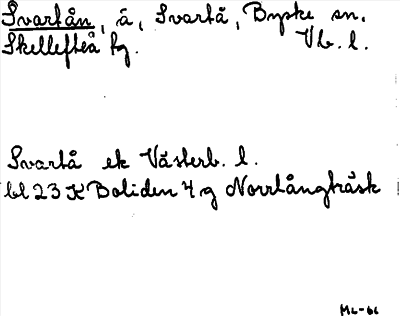 Svartån, å, Svartå, Byske sn.
Skellefteå tg. Vb. l.
Svartå ek Västerb. l.
bl 23 K Boliden 4 g Norrlångträsk
ML-66